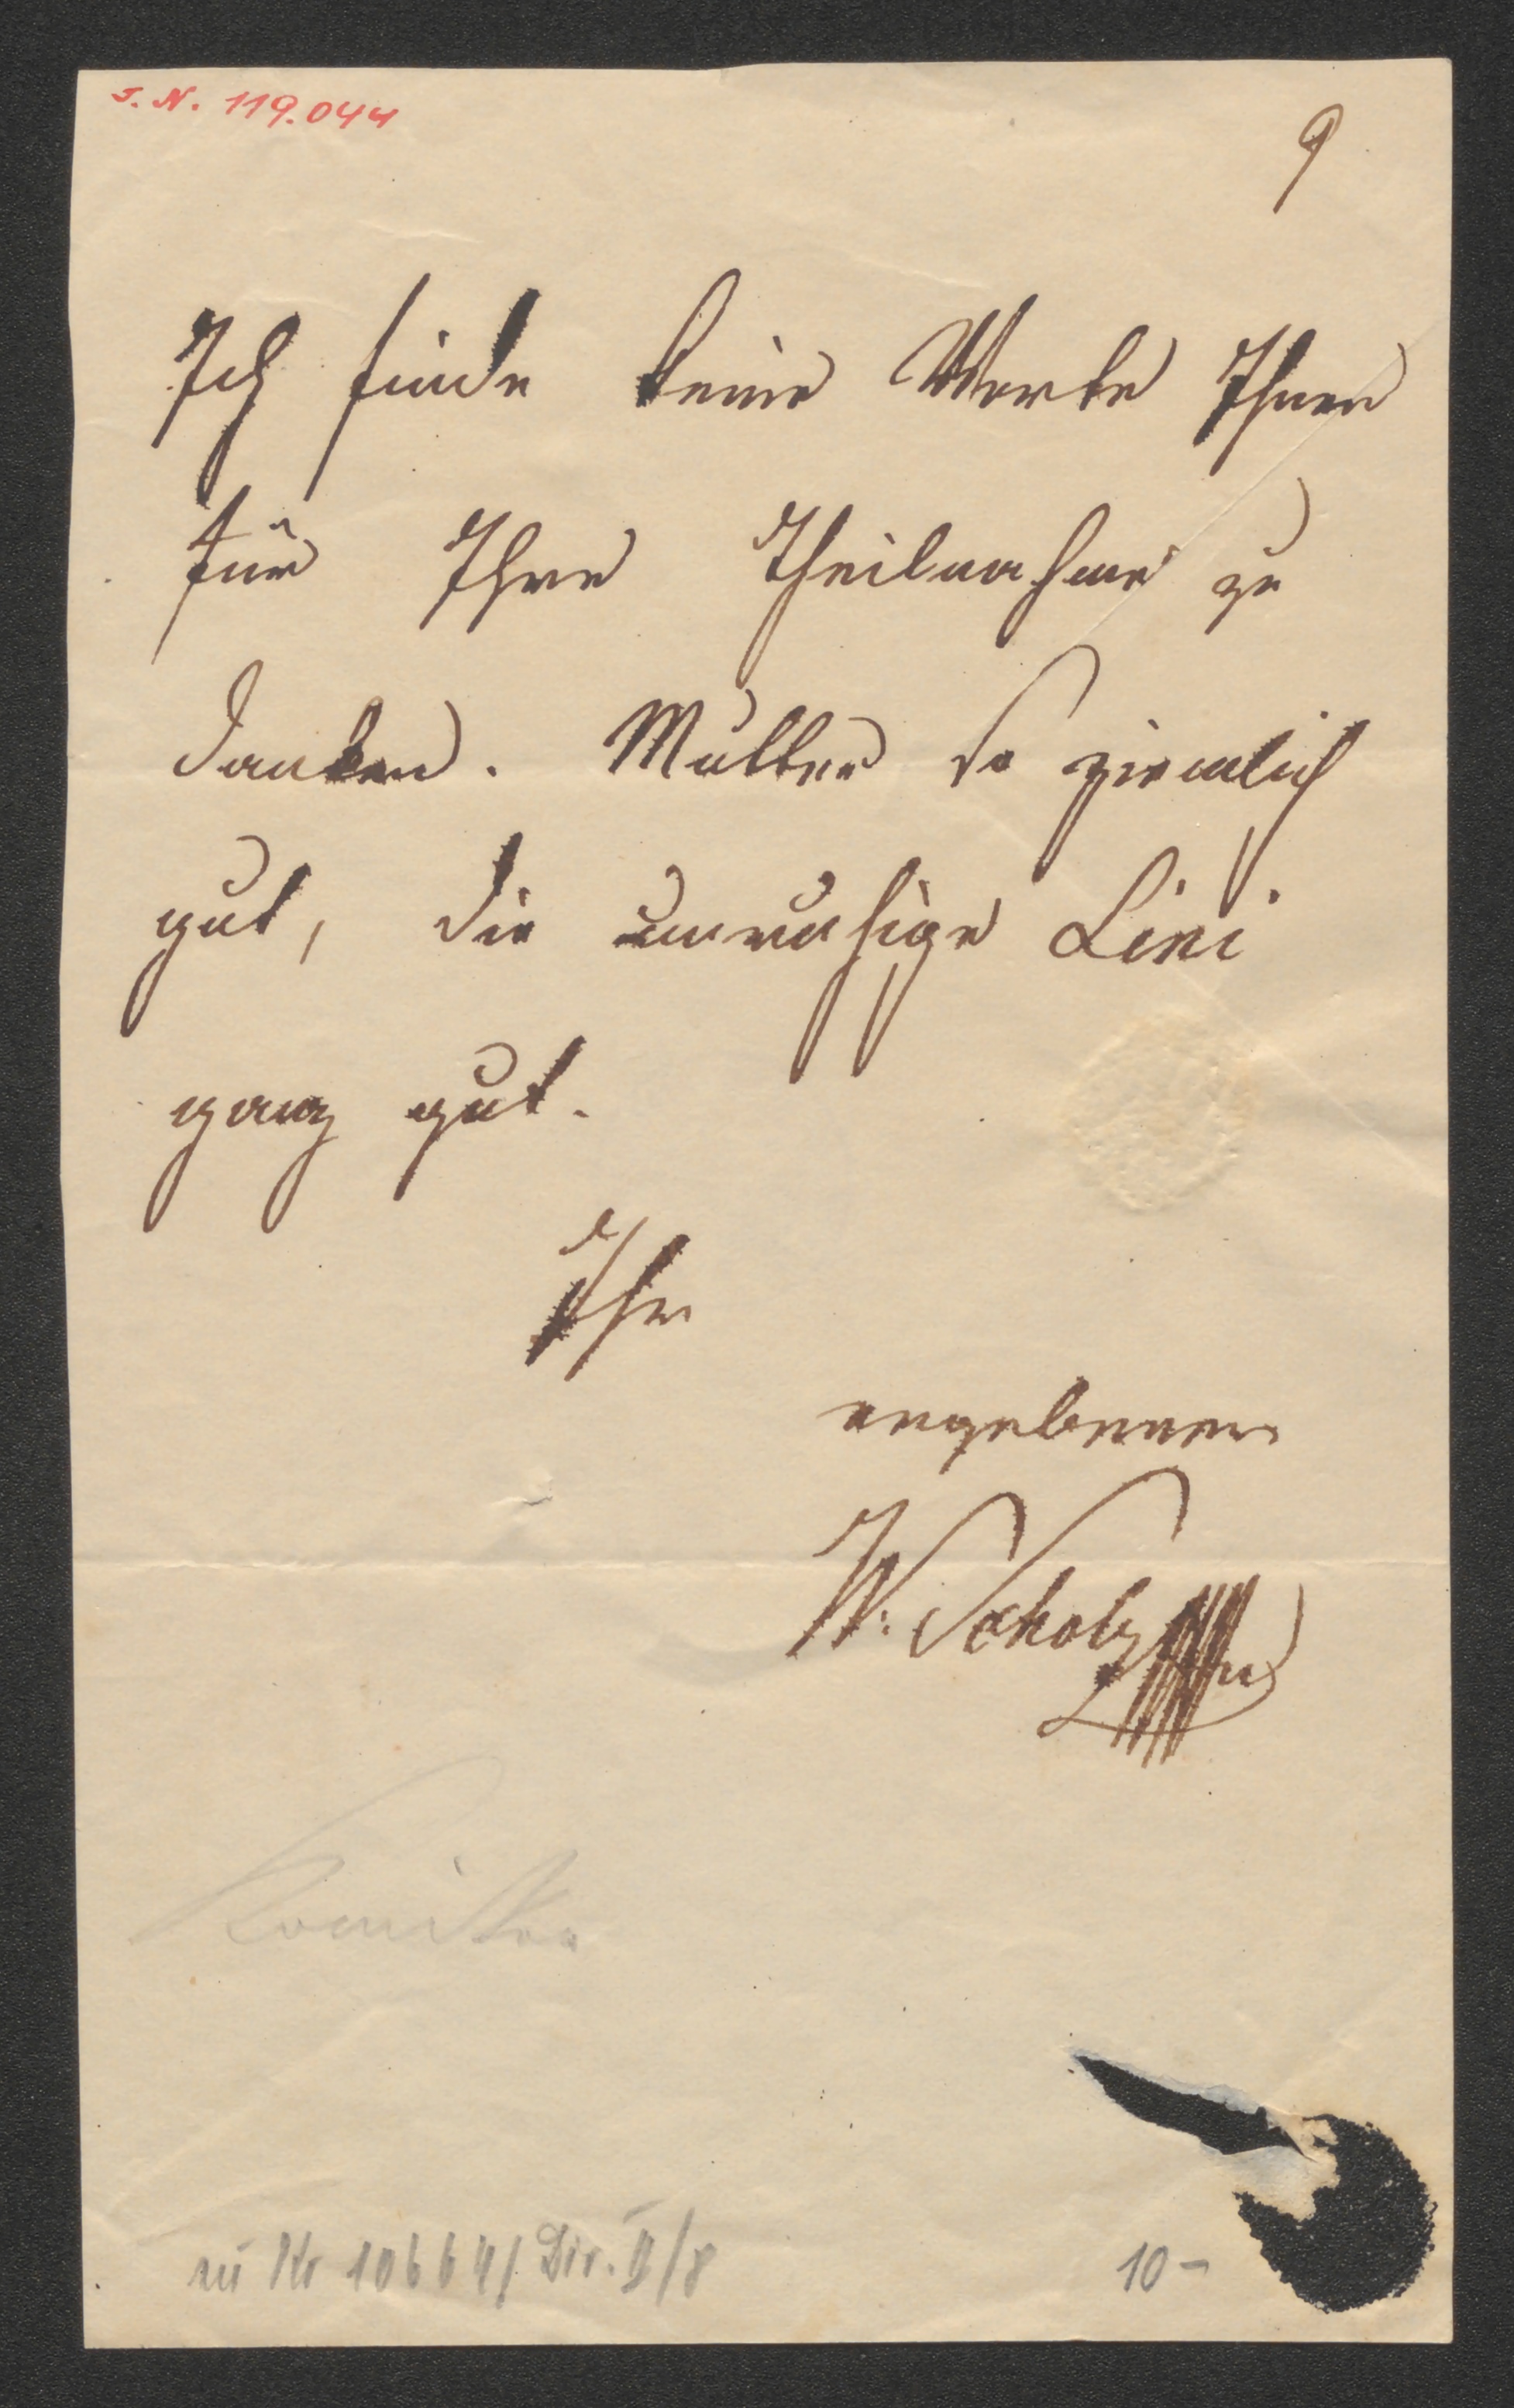 J. N. 119.044
9
Ich finde keine Worte Ihnen
für Ihre Theilnahme zu
danken. Mutter so ziemlich
gut, die unruhige Lini
ganz gut.
Ihr
ergebener
W. Scholz
Komiker
zu Nr 10664/ Dir. II/8
10-